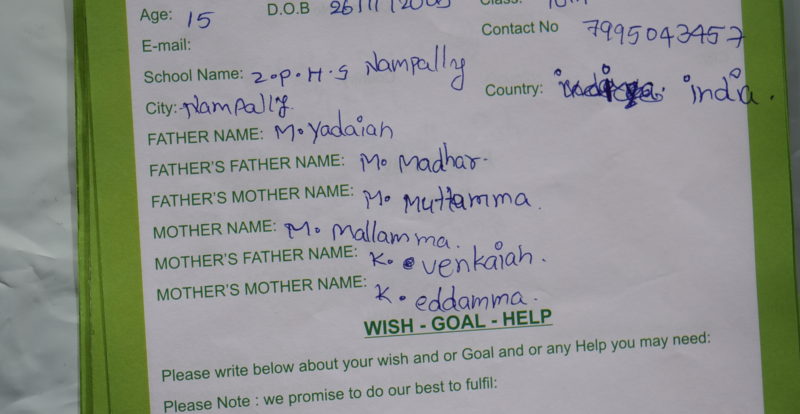 Age: 15 D.O.B 26/11/2005 Class: 10th
E-mail: Contact No 7995043457
School Name: Z.P.H.S Nampally
City: Nampally Country: india.
FATHER NAME: M. Yadaiah
FATHER'S FATHER NAME: M. Madhar.
FATHER'S MOTHER NAME: M. Muttamma.
MOTHER NAME: M. Mallamma.
MOTHER'S FATHER NAME: K. venkaiah.
MOTHER'S MOTHER NAME: K. eddamma.
WISH - GOAL - HELP
Please write below about your wish and or Goal and or any Help you may need:
Please Note : we promise to do our best to fulfil: